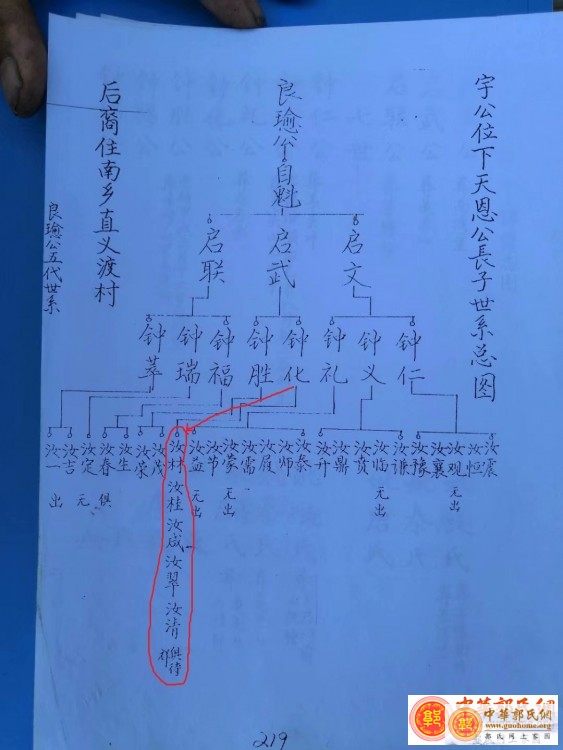 宇公位下天恩公長子世系总图
良瑜公
自魁
启文
启武
启联
钟仁
钟义
钟礼
钟化
钟胜
钟福
钟瑞
钟萃
汝震
汝恒
汝观 无出
汝襄
汝豫
汝谦
汝临 无出
汝贲
汝鼎
汝升
汝泰
汝师
汝履
汝需
汝蒙 无出
汝节
汝益 无出
汝材 汝桂 汝成 汝翠 汝清 俱待
汝茂
汝荣
汝生
汝春 俱
汝定 无
汝吉 出
汝一
后裔住南乡直义渡村
良瑜公五代世系
219
中華郭氏網
http://www.guohome.org
郭氏网上家园